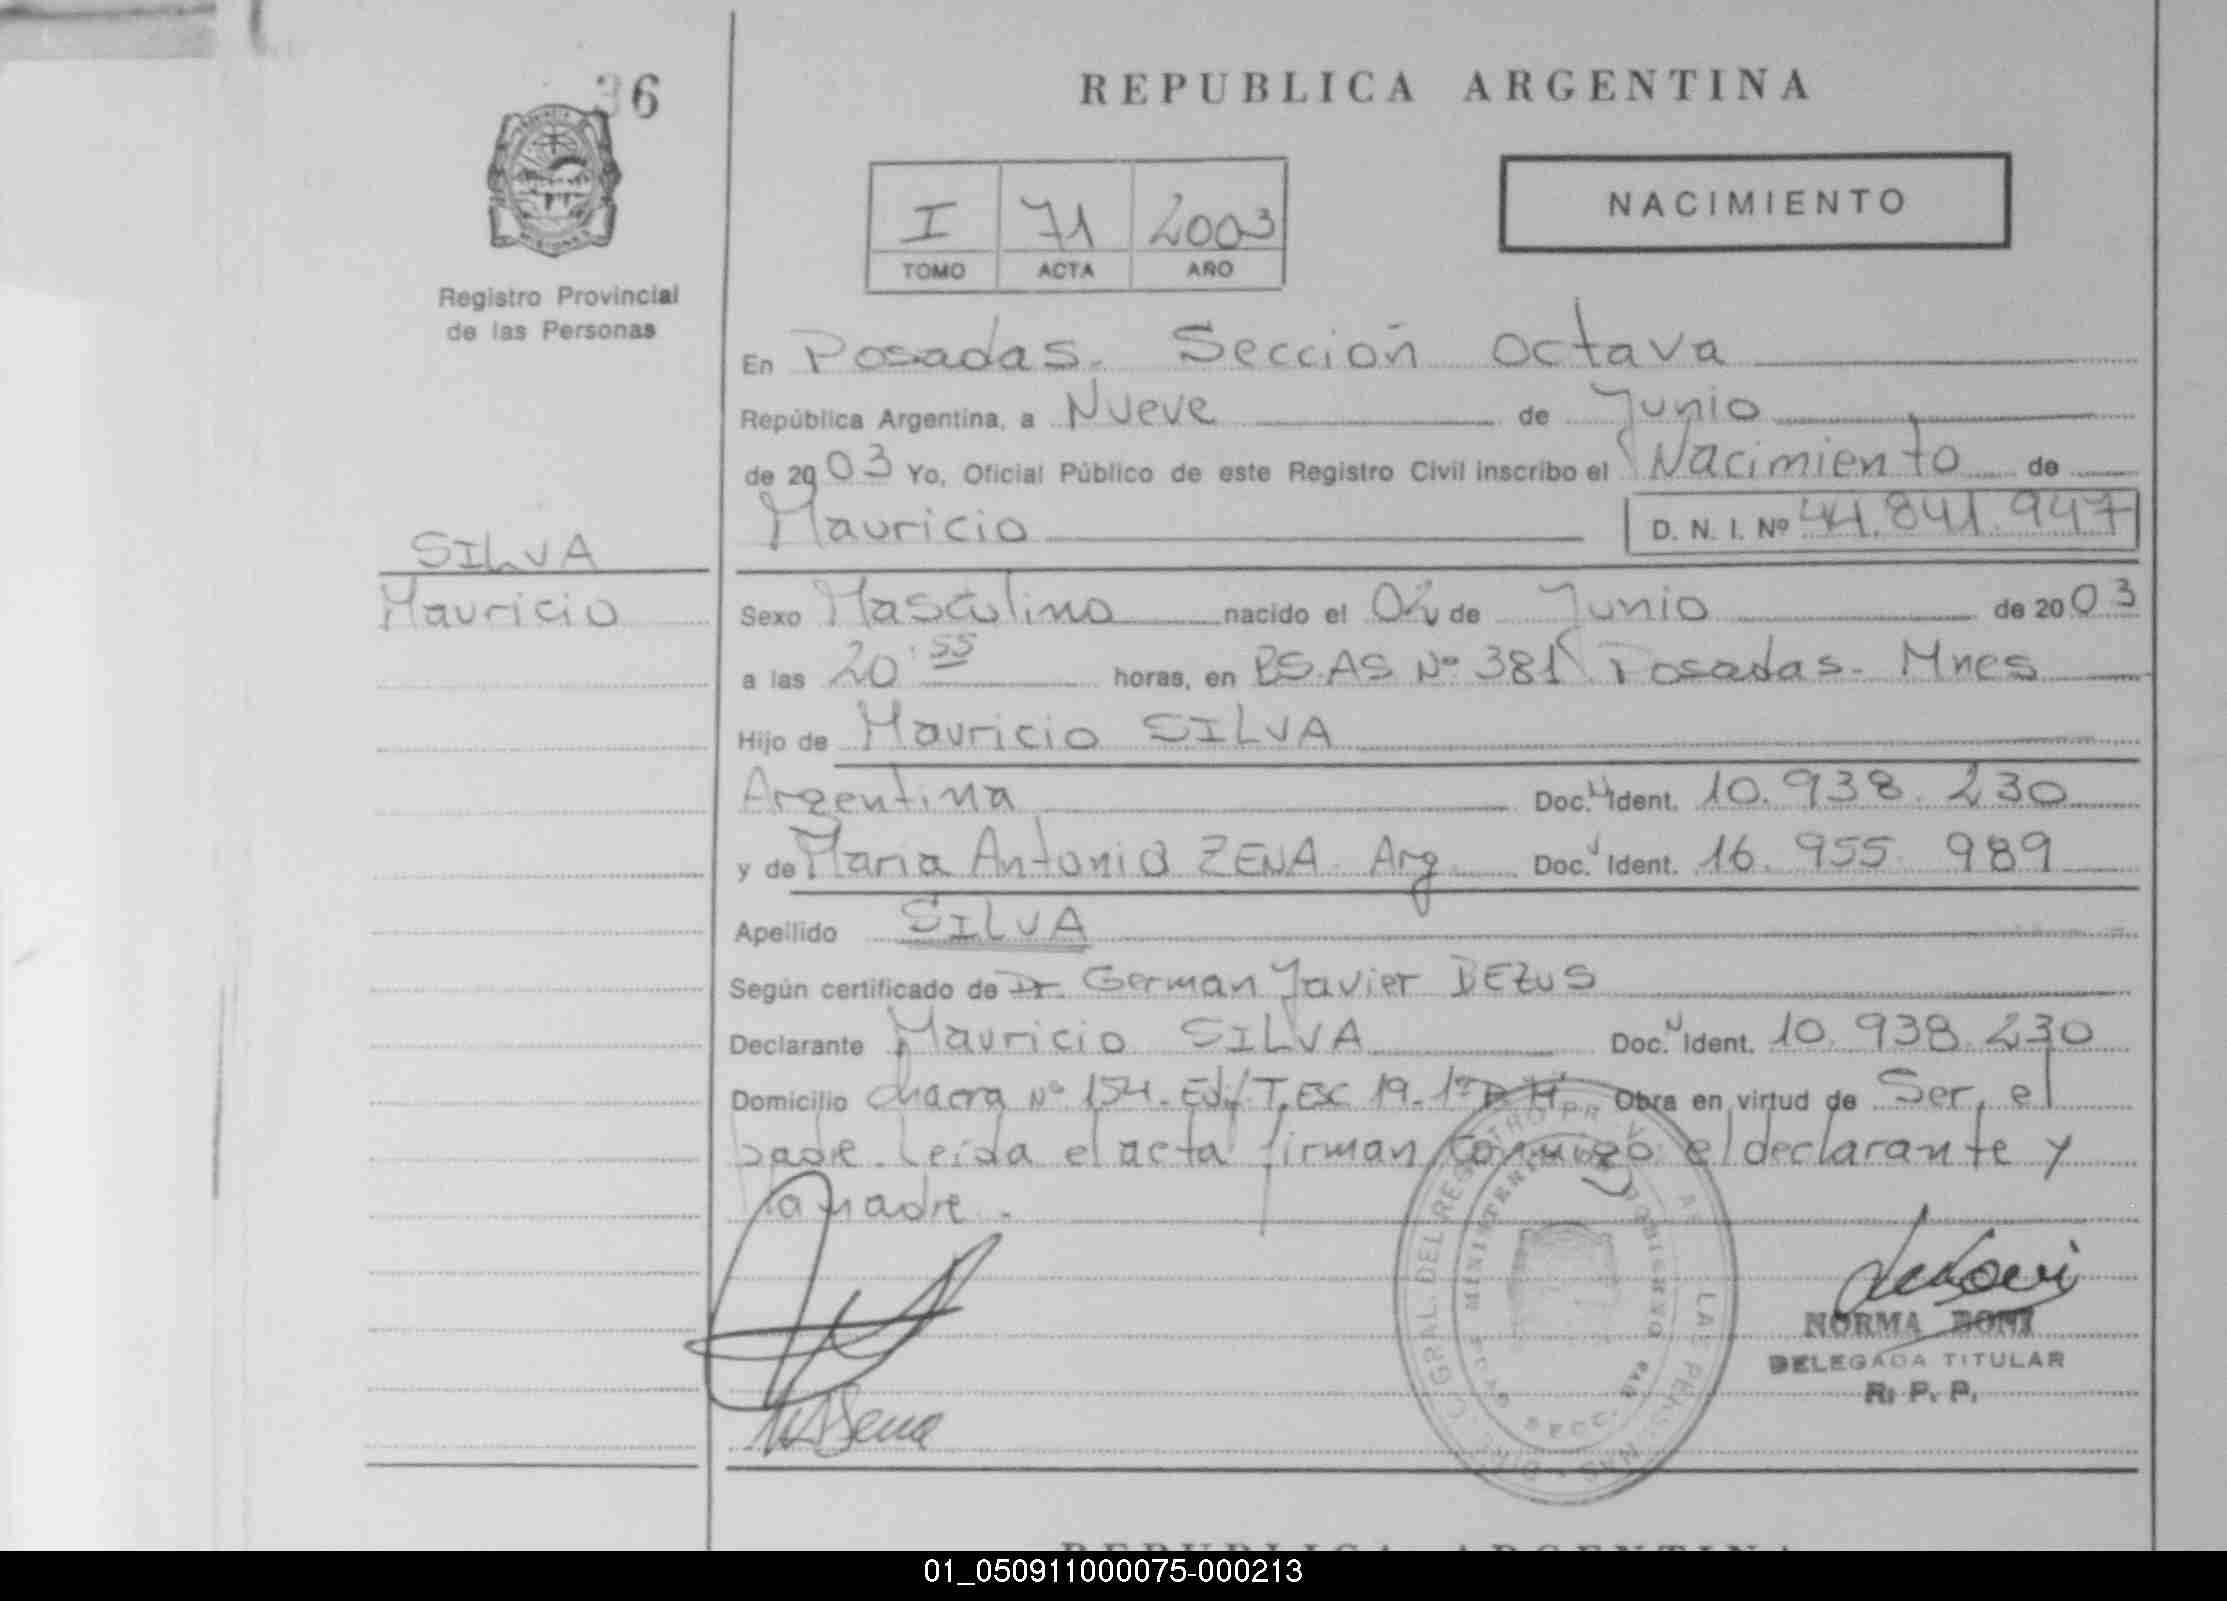 36
REPUBLICA ARGENTINA
NACIMIENTO
I 71 2003
TOMO ACTA AÑO
Registro Provincial
de las Personas
En Posadas. Sección Octava
República Argentina, a Nueve de Junio
de 2003 Yo, Oficial Público de este Registro Civil inscribo el Nacimiento de
Mauricio D. N. I. Nº 44.841.947
SILVA
Mauricio
Sexo Masculino nacido el 02 de Junio de 2003
a las 20:55 horas, en BS.AS Nº 381 Posadas. Mnes
Hijo de Mauricio SILVA
Argentina Doc. Ident. 10.938.230
y de Maria Antonia ZENA. Arg Doc. Ident. 16.955.989
Apellido SILVA
Según certificado de Dr. German Javier BEZUS
Declarante Mauricio SILVA Doc. Ident. 10.938.230
Domicilio Chacra Nº 154. Edf. T. ESC 19. 1º Obra en virtud de Ser el
padre. Leída el acta firman conmigo el declarante y
la madre.
NORMA BONI
DELEGADA TITULAR
R. P. P.
MINISTERIO GOBIERNO SECC.
GRAL. DEL REGISTRO LAS PERSONAS
REPUBLICA ARGENTINA
01_050911000075-000213